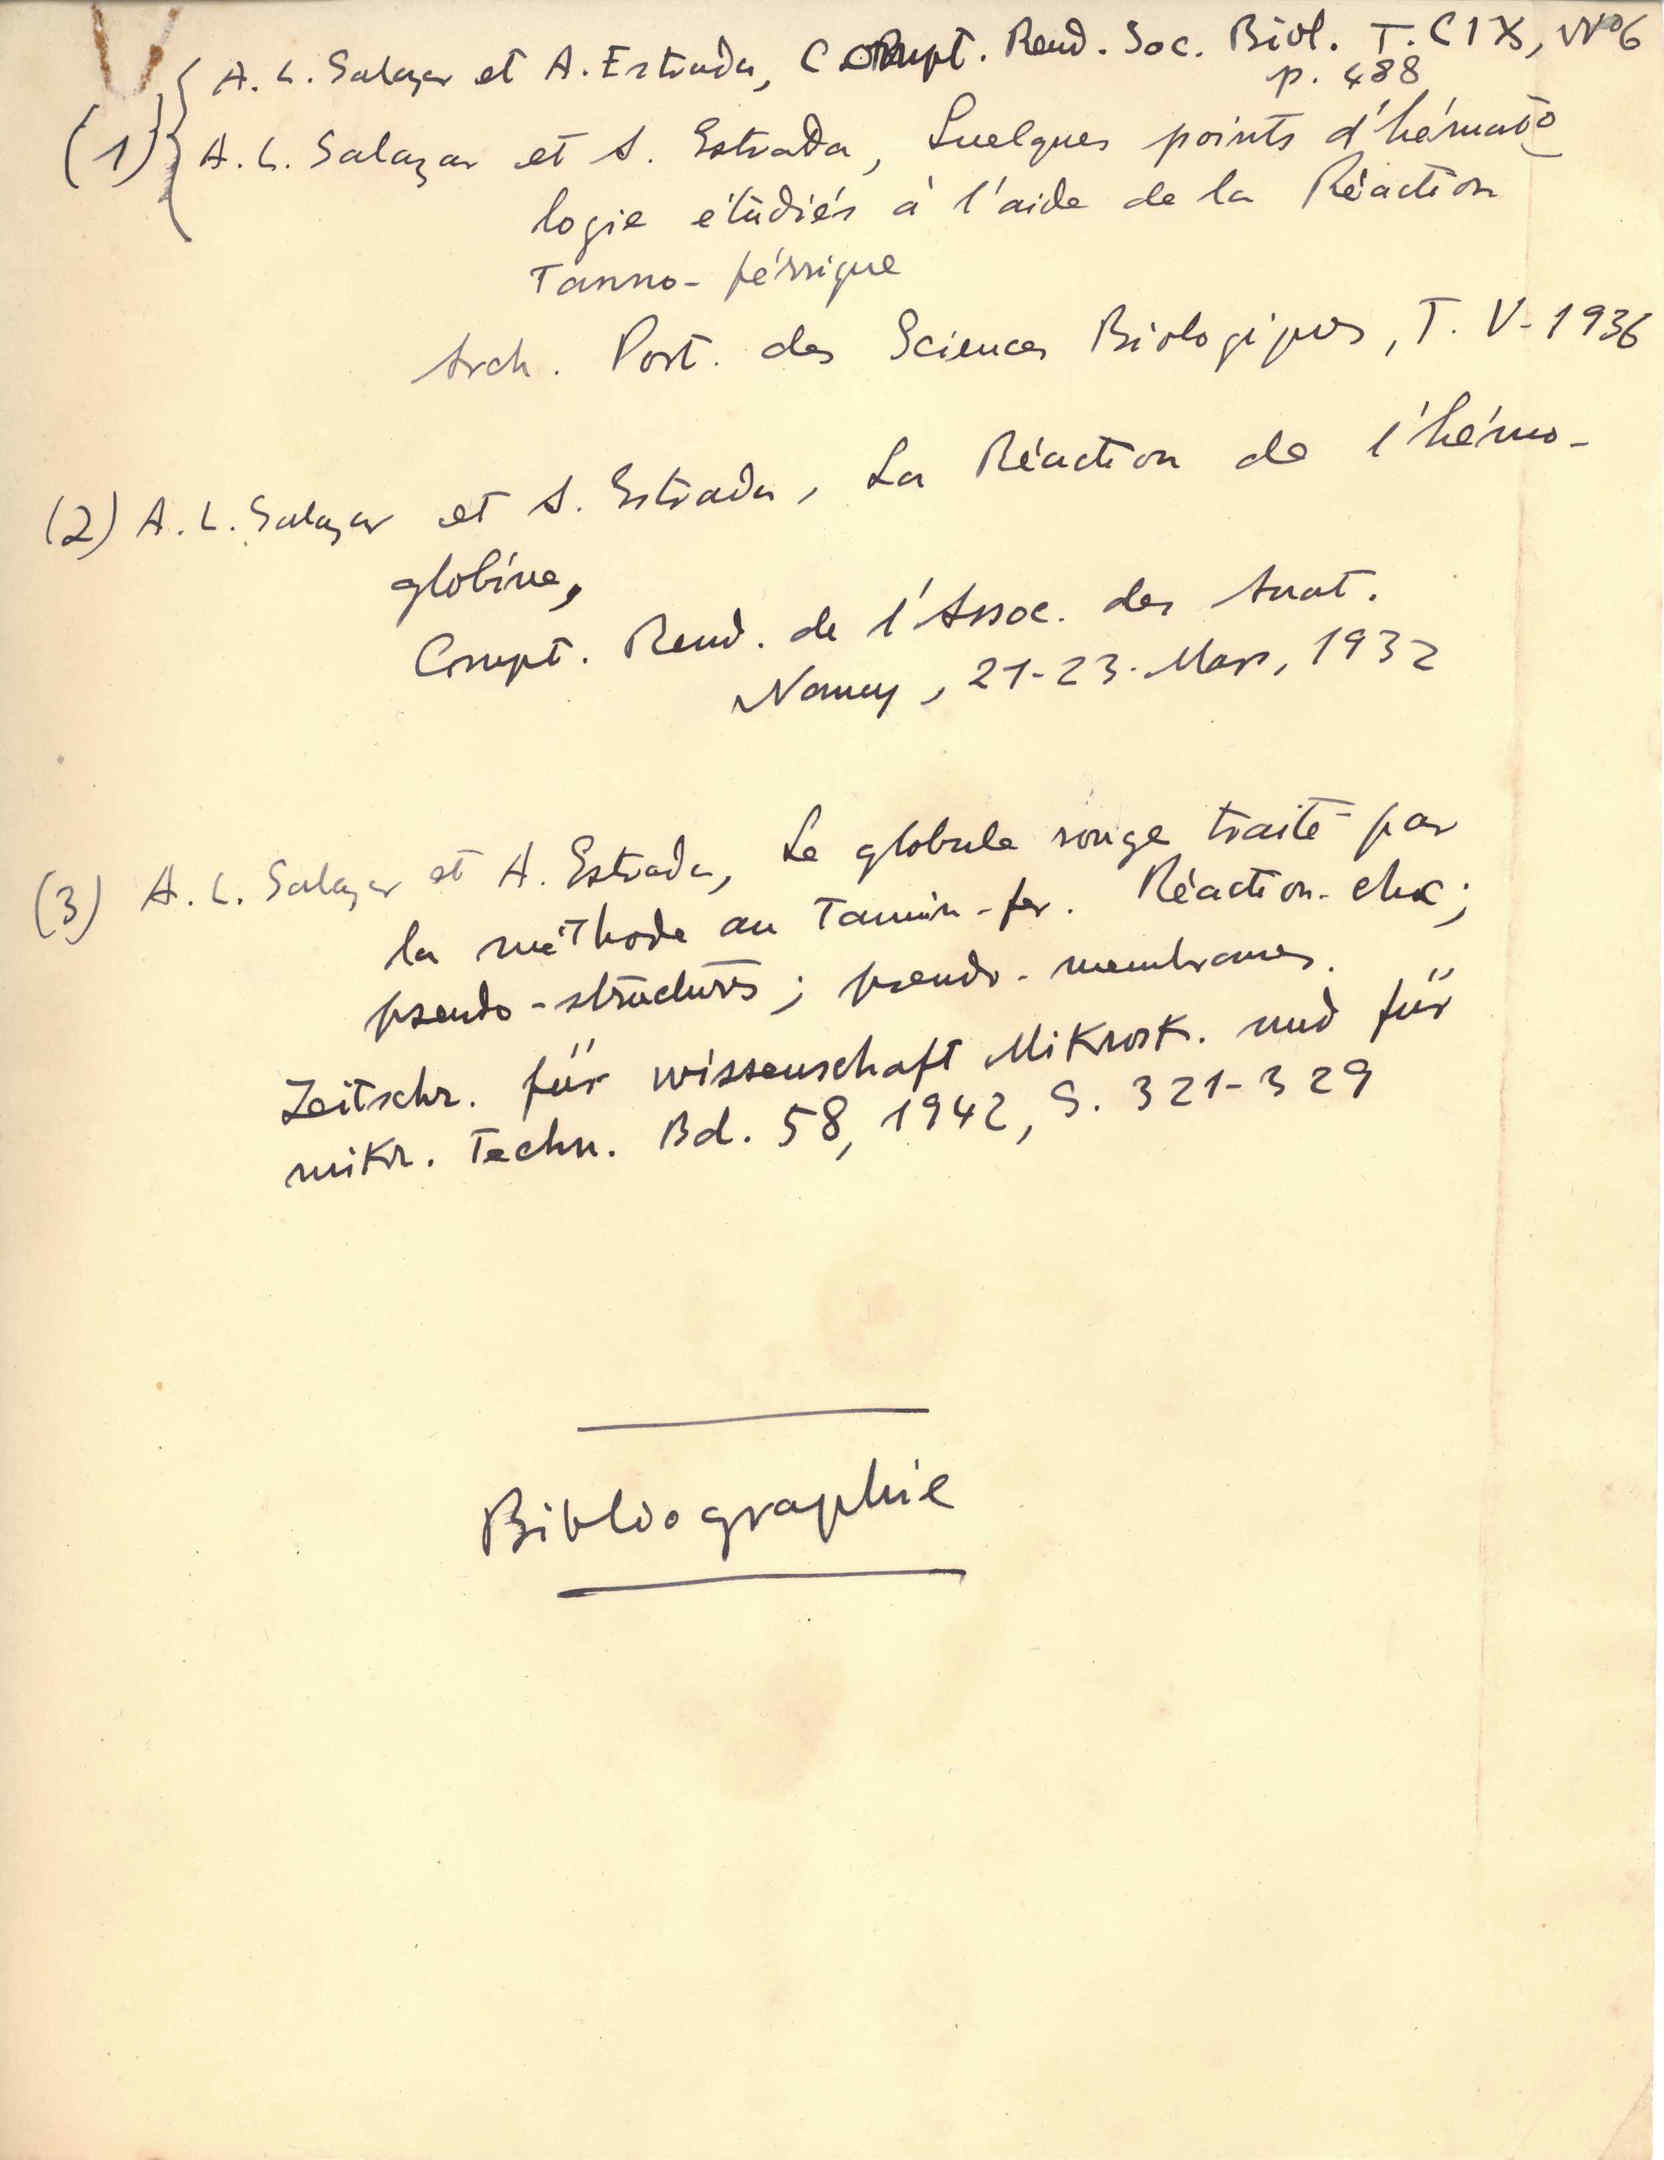 A. L. Salazar et A. Estrada, Compt. Rend. Soc. Biol. T. CIX, Nº 6
p. 488
(1) A. L. Salazar et A. Estrada, Quelques points d'hémato
logie étudiés à l'aide de la Réaction
Tanno-férrique
Arch. Port. des Sciences Biologiques, T. V-1936
(2) A. L. Salazar et A. Estrada, La Réaction de l'hémo-
globine,
Compt. Rend. de l'Assoc. des Anat.
Nancy, 21-23-Mars, 1932
(3) A. L. Salazar et A. Estrada, Le globule rouge traité par
la méthode au Tannin-fer. Réaction-choc;
pseudo-structures; pseudo-membranes.
Zeitschr. für wissenschaft Mikrosk. und für
mikr. Techn. Bd. 58, 1942, S. 321-329
Bibliographie